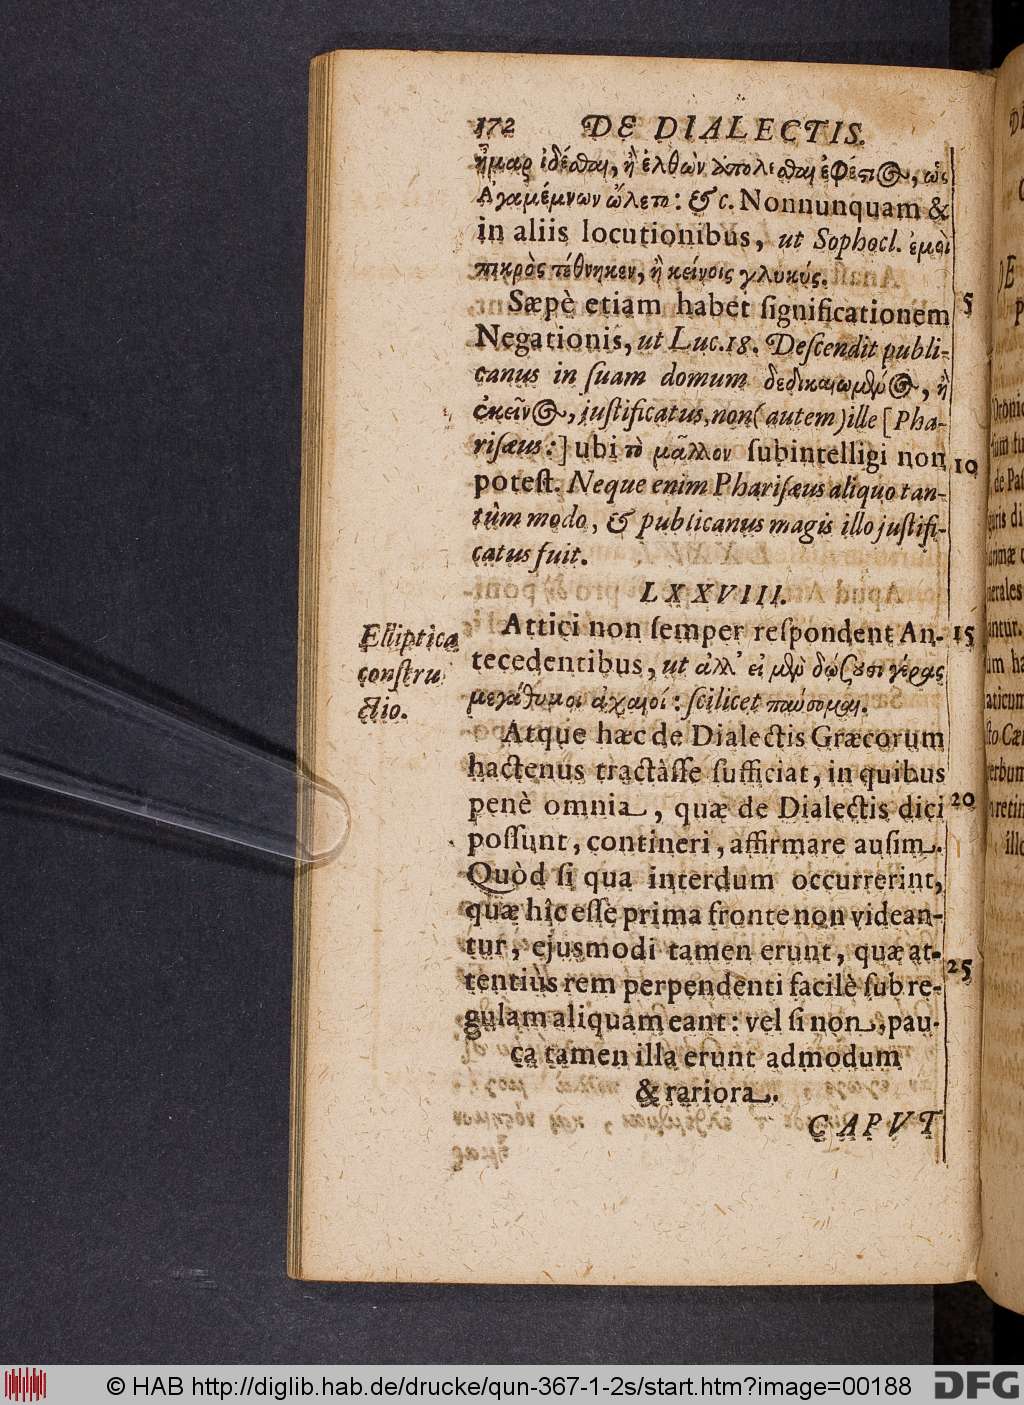 172 DE DIALECTIS.
ἦμαρ ἰδέσθαι, ἢ ἐλθὼν ἀπολέσθαι ἐφέστιος, ὡς
Ἀγαμέμνων ὤλετο: & c. Nonnunquam &
in aliis locutionibus, ut Sophocl. ἐμοὶ
πικρὸς τέθνηκεν, ἢ κείνοις γλυκύς.
Sæpè etiam habet ſignificationem 5
Negationis, ut Luc.18. Deſcendit publi-
canus in ſuam domum δεδικαιωμένος, ἢ
ἐκεῖνος, juſtificatus, non (autem) ille [Pha-
riſæus:] ubi τὸ μᾶλλον ſubintelligi non 10
poteſt. Neque enim Phariſæus aliquo tan-
tùm modo, & publicanus magis illo juſtifi-
catus fuit.
LXXVIII.
Elliptica
conſtru
ctio.
Attici non ſemper reſpondent An- 15
tecedentibus, ut ἀλλ' εἰ μὲν δώσουσι γέρας
μεγάθυμοι ἀχαιοί: ſcilicet παύσομαι.
Atque hæc de Dialectis Græcorum
hactenus tractâſſe ſufficiat, in quibus
penè omnia, quæ de Dialectis dici 20
poſſunt, contineri, affirmare auſim.
Quòd ſi qua interdum occurrerint,
quæ hîc eſſe prima fronte non videan-
tur, ejusmodi tamen erunt, quæ at-
tentiùs rem perpendenti facilè ſub re- 25
gulam aliquam eant: vel ſi non, pau-
ca tamen illa erunt admodum
& rariora.
CAPVT
© HAB http://diglib.hab.de/drucke/qun-367-1-2s/start.htm?image=00188 DFG